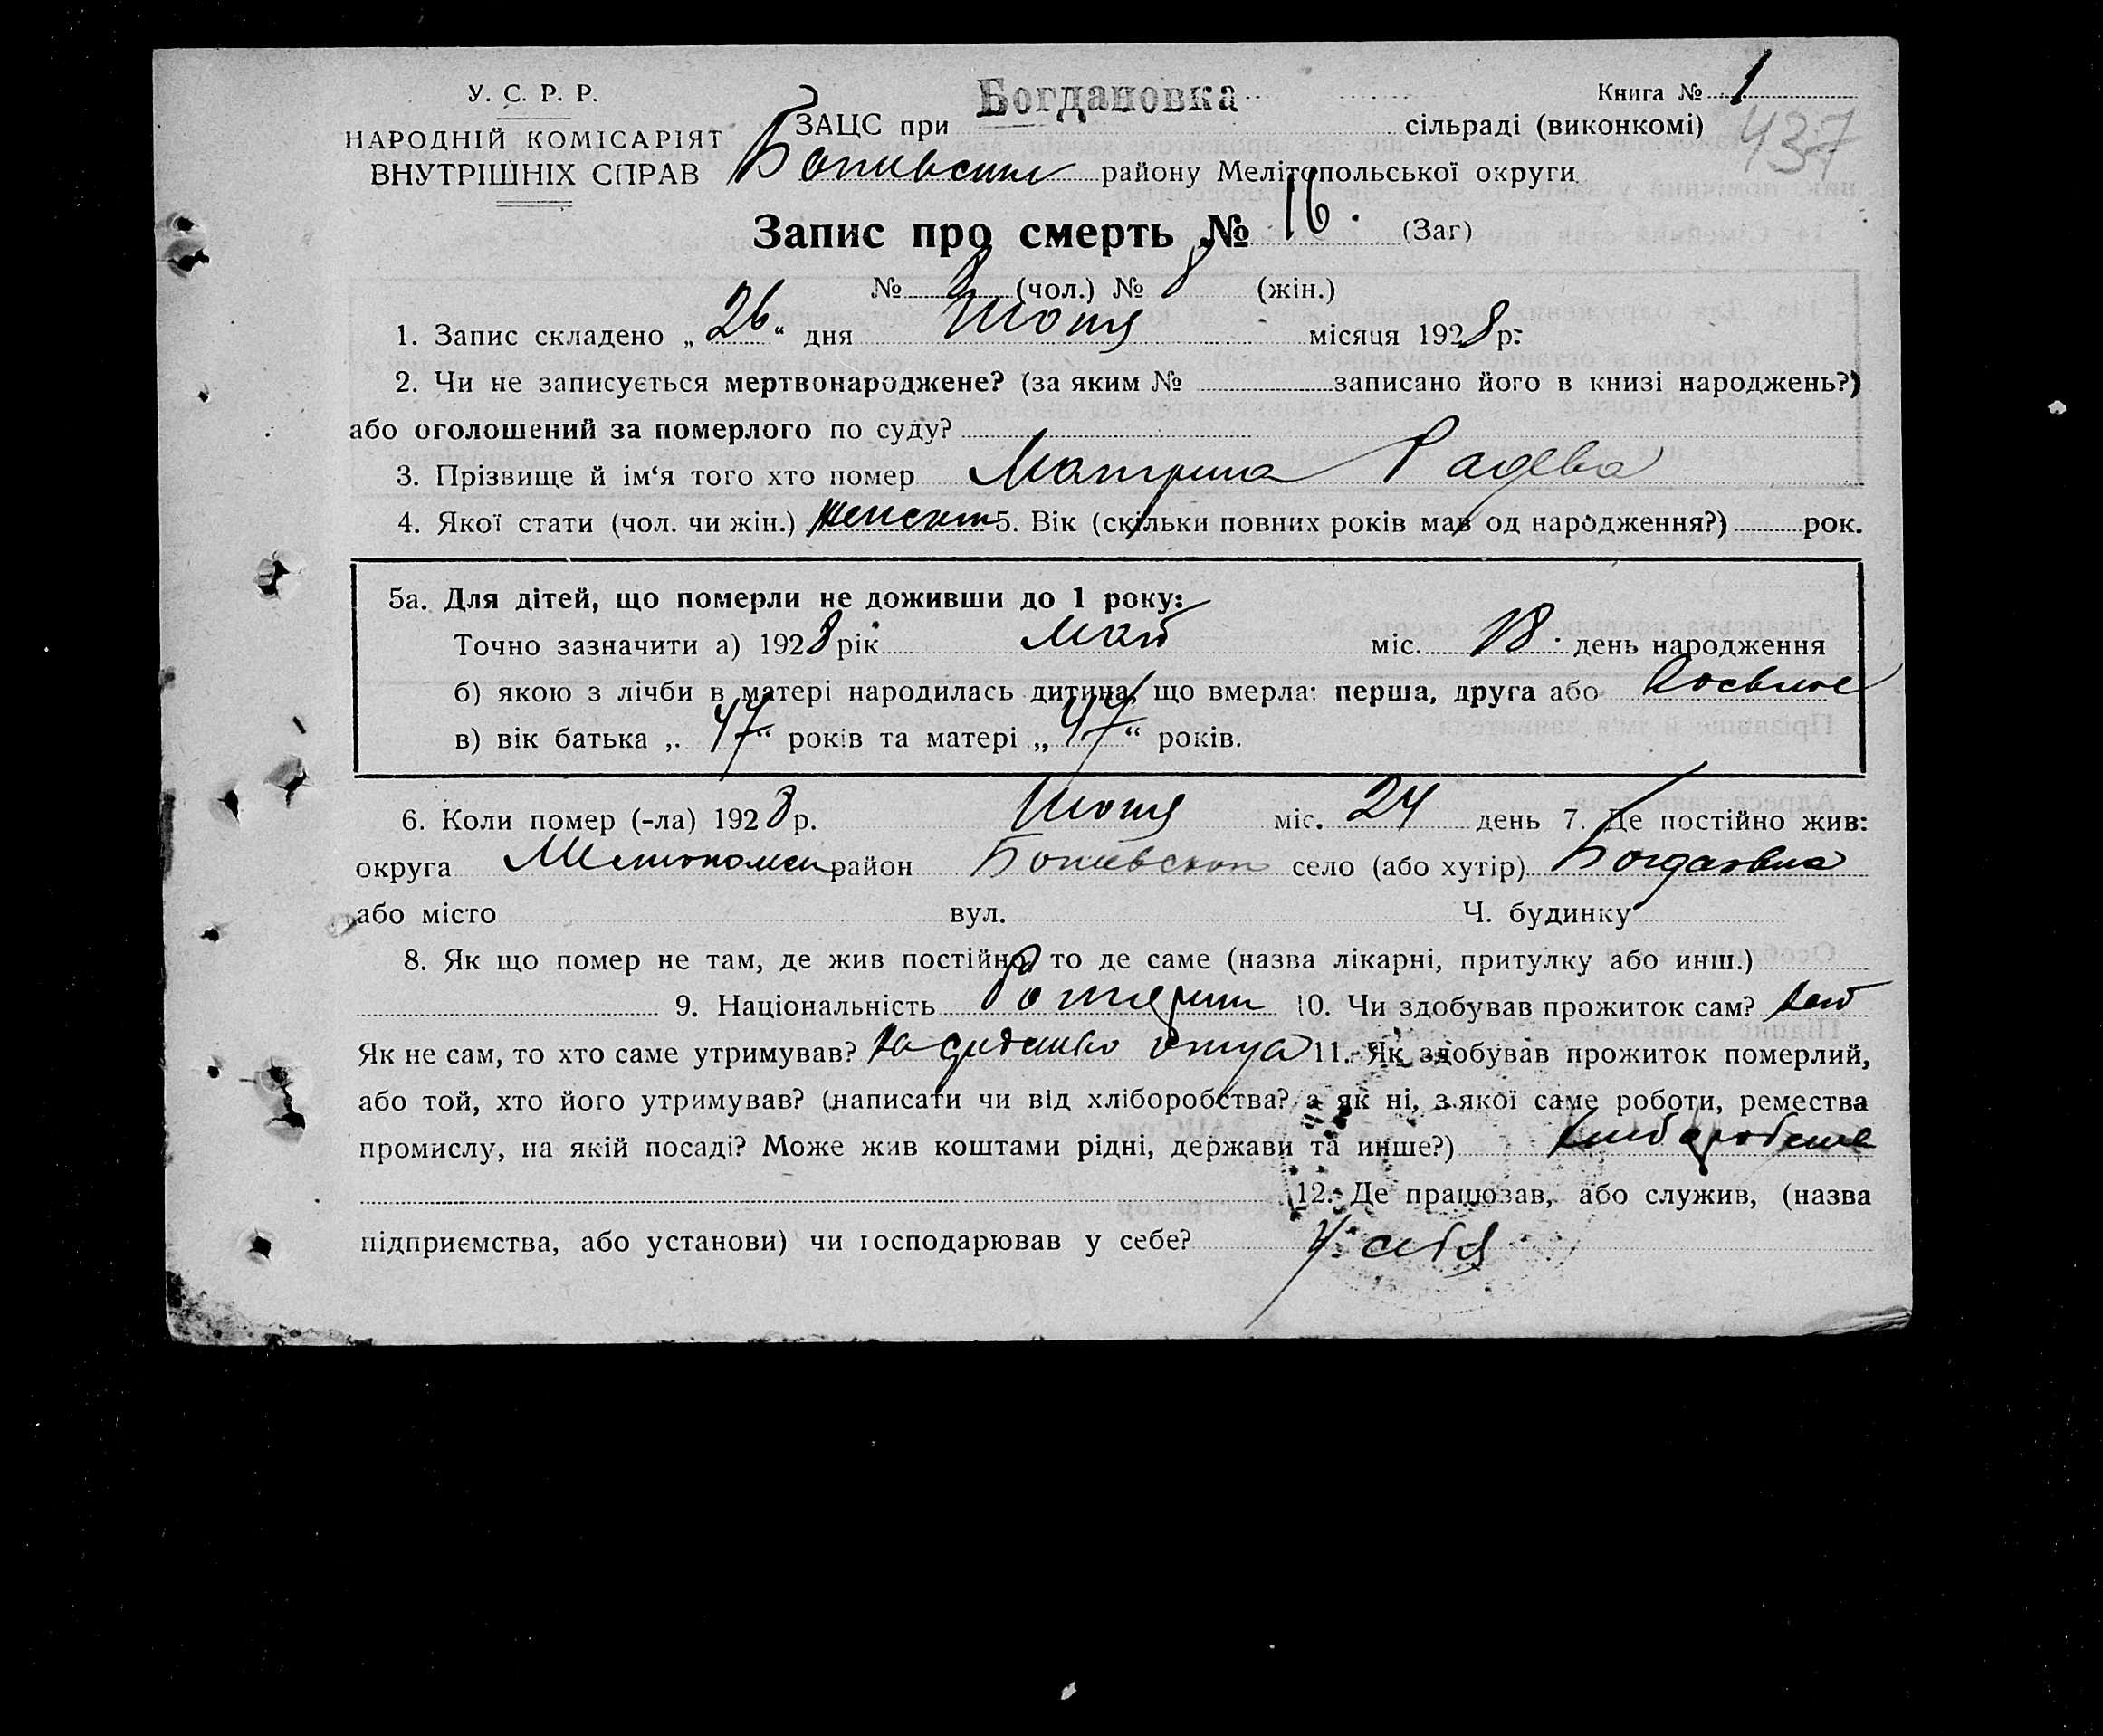 У. С. Р. Р.
НАРОДНІЙ КОМІСАРІЯТ
ВНУТРІШНІХ СПРАВ
Книга № 1
437
ЗАЦС при Богдановка сільраді (виконкомі)
району Мелітопольської округи
Запис про смерть № 16. (Заг)
№ 8 (чол.) № 8 (жін.)
1. Запис складено „26“ дня Июня місяця 1928 р.
2. Чи не записується мертвонароджене? (за яким № записано його в книзі народжень?)
або оголошений за померлого по суду?
3. Прізвище й ім‘я того хто помер Матрина Радева
4. Якої стати (чол. чи жін.) 5. Вік (скільки повних років мав од народження?) рок.
5а. Для дітей, що померли не доживши до 1 року:
Точно зазначити а) 1928 рік Май міс. 18 день народження
б) якою з лічби в матері народилась дитина, що вмерла: перша, друга або
в) вік батька „47“ років та матері „47“ років.
6. Коли помер (-ла) 1928 р. Июня міс. 24 день 7. Де постійно жив:
округа район село (або хутір)
або місто вул. Ч. будинку
8. Як що помер не там, де жив постійно, то де саме (назва лікарні, притулку або инш.)
9. Національність 10. Чи здобував прожиток сам?
Як не сам, то хто саме утримував? отца 11. Як здобував прожиток померлий,
або той, хто його утримував? (написати чи від хліборобства? а як ні, з якої саме роботи, ремества
промислу, на якій посаді? Може жив коштами рідні, держави та инше?)
12. Де працював, або служив, (назва
підприємства, або установи) чи господарював у себе? У себя